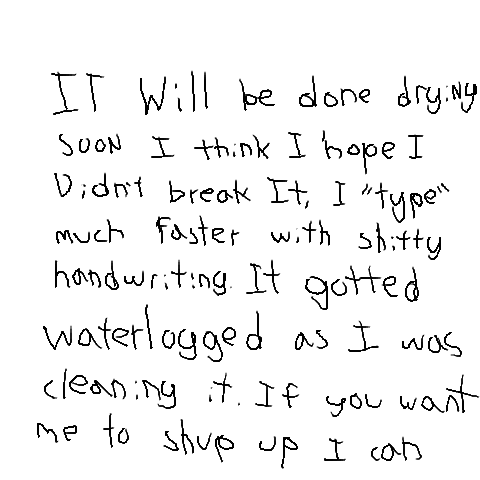 IT Will be done drying
soon I think I hope I
Didn't break It, I "type"
much faster with shitty
handwriting. It gotted
waterlogged as I was
cleaning it. If you want
me to shup up I can